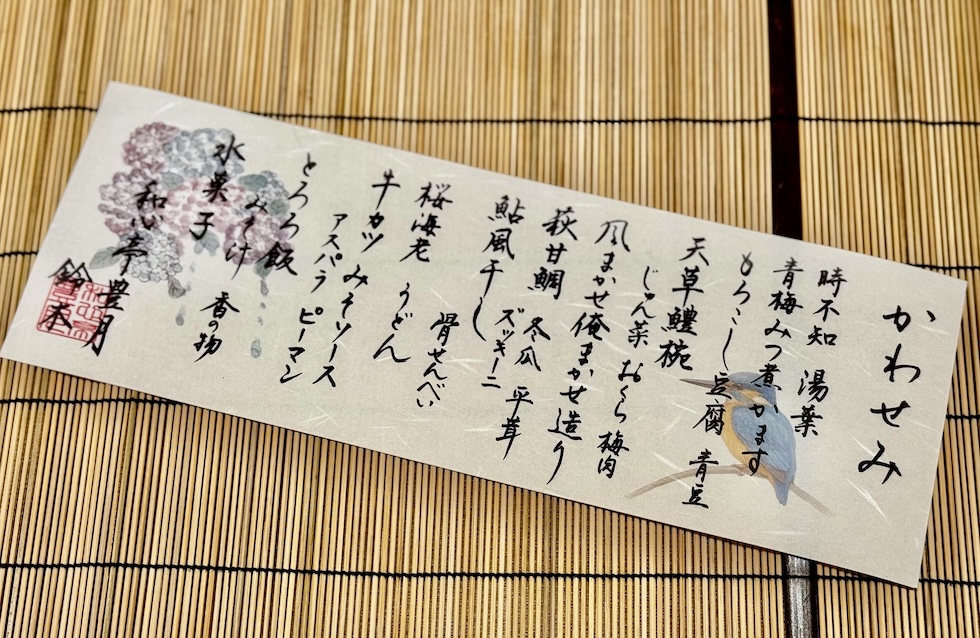 かわせみ
時不知 湯葉
青梅みつ煮 かます
もろこし豆腐 青豆
天草鱧椀
じゅん菜 おくら 梅肉
風まかせ俺まかせ造り
萩甘鯛 冬瓜 平茸
ズッキーニ
鮎風干し
骨せんべい
桜海老 うどん
牛カツ みそソース
アスパラ ピーマン
とろろ飯
みそ汁 香の物
水菓子
和心亭 豊月
鈴木